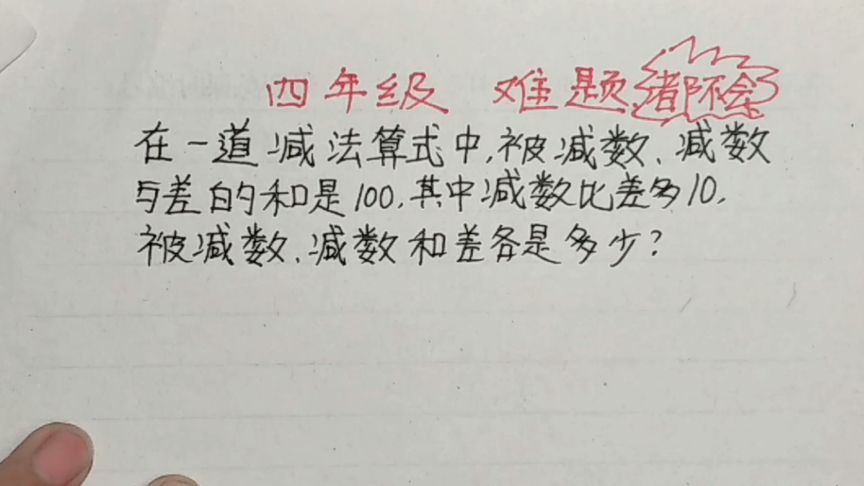 四年级 难题 都不会
在一道减法算式中,被减数、减数
与差的和是100,其中减数比差多10,
被减数、减数和差各是多少?